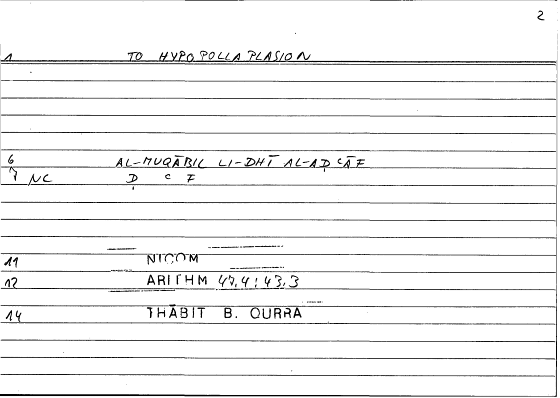 2
1 TO HYPOPOLLAPLASION
6 AL-MUQĀBIL LI-DHĪ AL-AḌʿĀF
7 NC Ḍ ʿ F
11 NICOM
12 ARITHM 47,4; 43,3
14 THĀBIT B. QURRA